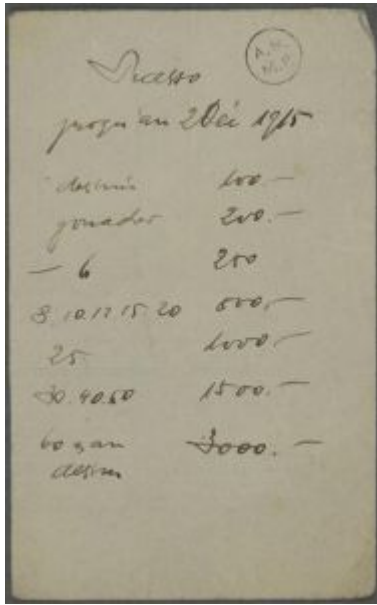 A.M.
M.P.
Picasso
jusqu'au 2 Dec 1915
dessin 100.—
gouaches 200.—
— 6 250
8.10.12.15.20 500.—
25 1000.—
30.40.50 1500.—
60 3000.—
dessin